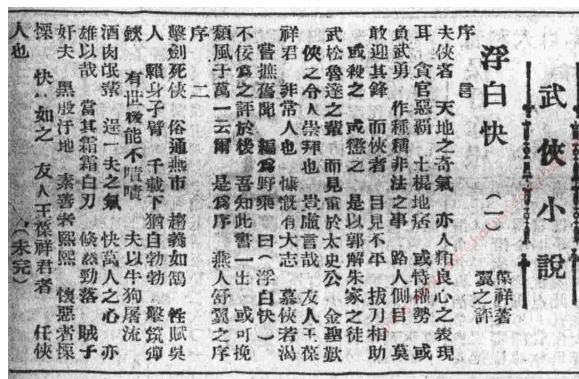 武俠小說
浮白快 (一)
葆祥著
翼之評
序言
夫俠者 天地之奇氣 亦人類良心之表現
耳 貪官惡覇 土棍地痞 或恃權勢 或
負武勇 作種種非法之事 路人側目 莫
敢迎其鋒 而俠者 目見不平 拔刀相助
或殺之 或懲之 是以郭解朱家之徒
武松魯達之輩 而見重於太史公 金聖歎
俠之令人崇拜也 豈虛言哉 友人王葆
祥君 非常人也 慷慨有大志 慕俠若渴
嘗摭舊聞 編爲野乘 曰(浮白快)
不佞爲之評於後 吾知此書一出 或可挽
頹風于萬一云爾 是爲序 燕人舒翼之序
序二
擊劍死俠 俗通燕市 趨義如鵠 性賦吳
人 賴身子臂 千載下猶自勃勃 擊筑彈
鋏 有世能不嘖嘖 夫以牛狗屠流
酒肉氓輩 逞一夫之氣 快萬人之心 亦
雄以哉 當其霜霜白刃 倐焱勁落 賊子
奸夫 黑股汙地 素善者熙熙 懷惡者慄
慄 快如之 友人王葆祥君者 任俠
人也 (未完)